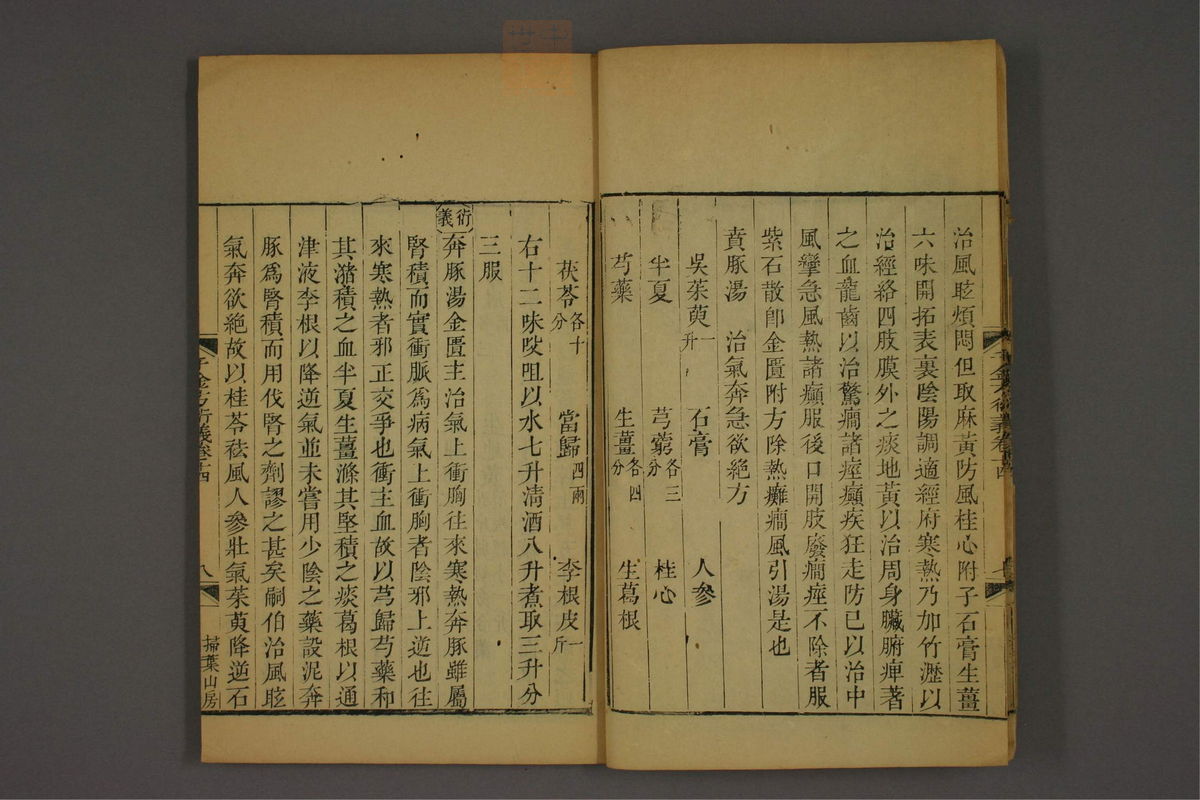 治風眩煩悶但取麻黃防風桂心附子石膏生薑
六味開拓表裏陰陽調適經府寒熱乃加竹瀝以
治經絡四肢膜外之痰地黃以治周身臟腑痺著
之血龍齒以治驚癎諸痙癲疾狂走防已以治中
風攣急風熱諸癲服後口開肢廢癎痙不除者服
紫石散卽金匱附方除熱癱癎風引湯是也
賁豚湯 治氣奔急欲絶方
吳茱萸一升 石膏 人參
半夏 芎藭各三分 桂心
芍藥 生薑各四分 生葛根
茯苓各十分 當歸四兩 李根皮一斤
右十二味㕮咀以水七升淸酒八升煮取三升分
三服
衍義 奔豚湯金匱主治氣上衝胸往來寒熱奔豚雖屬
腎積而實衝脈爲病氣上衝胸者陰邪上逆也往
來寒熱者邪正交爭也衝主血故以芎歸芍藥和
其瀦積之血半夏生薑滌其堅積之痰葛根以通
津液李根以降逆氣並未嘗用少陰之藥設泥奔
豚爲腎積而用伐腎之劑謬之甚矣嗣伯治風眩
氣奔欲絶故以桂苓祛風人參壯氣茱萸降逆石
千金方衍義卷十四
八
掃葉山房